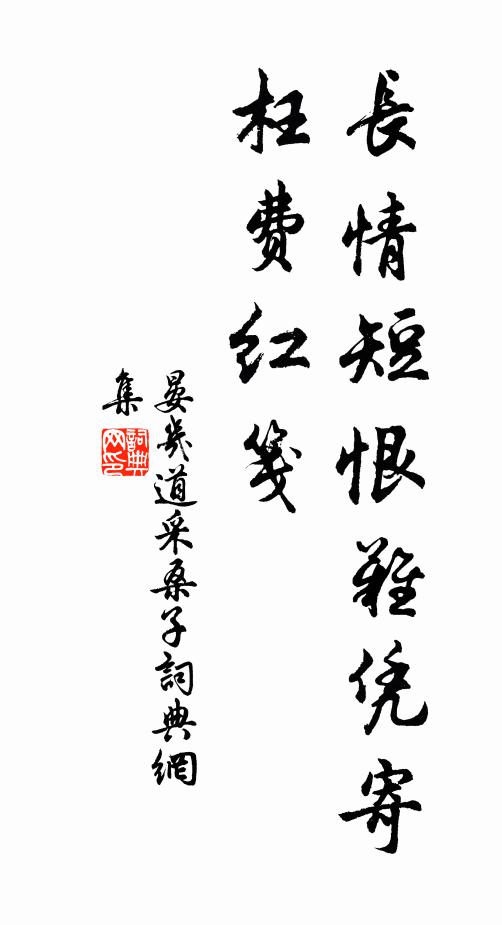 長情短恨難凭寄
枉费红箋
晏幾道采桑子詞典網
集
詞典網印